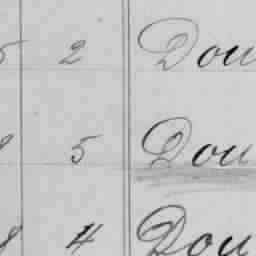 5 2 Dou
5 Dou
8 4 Dou